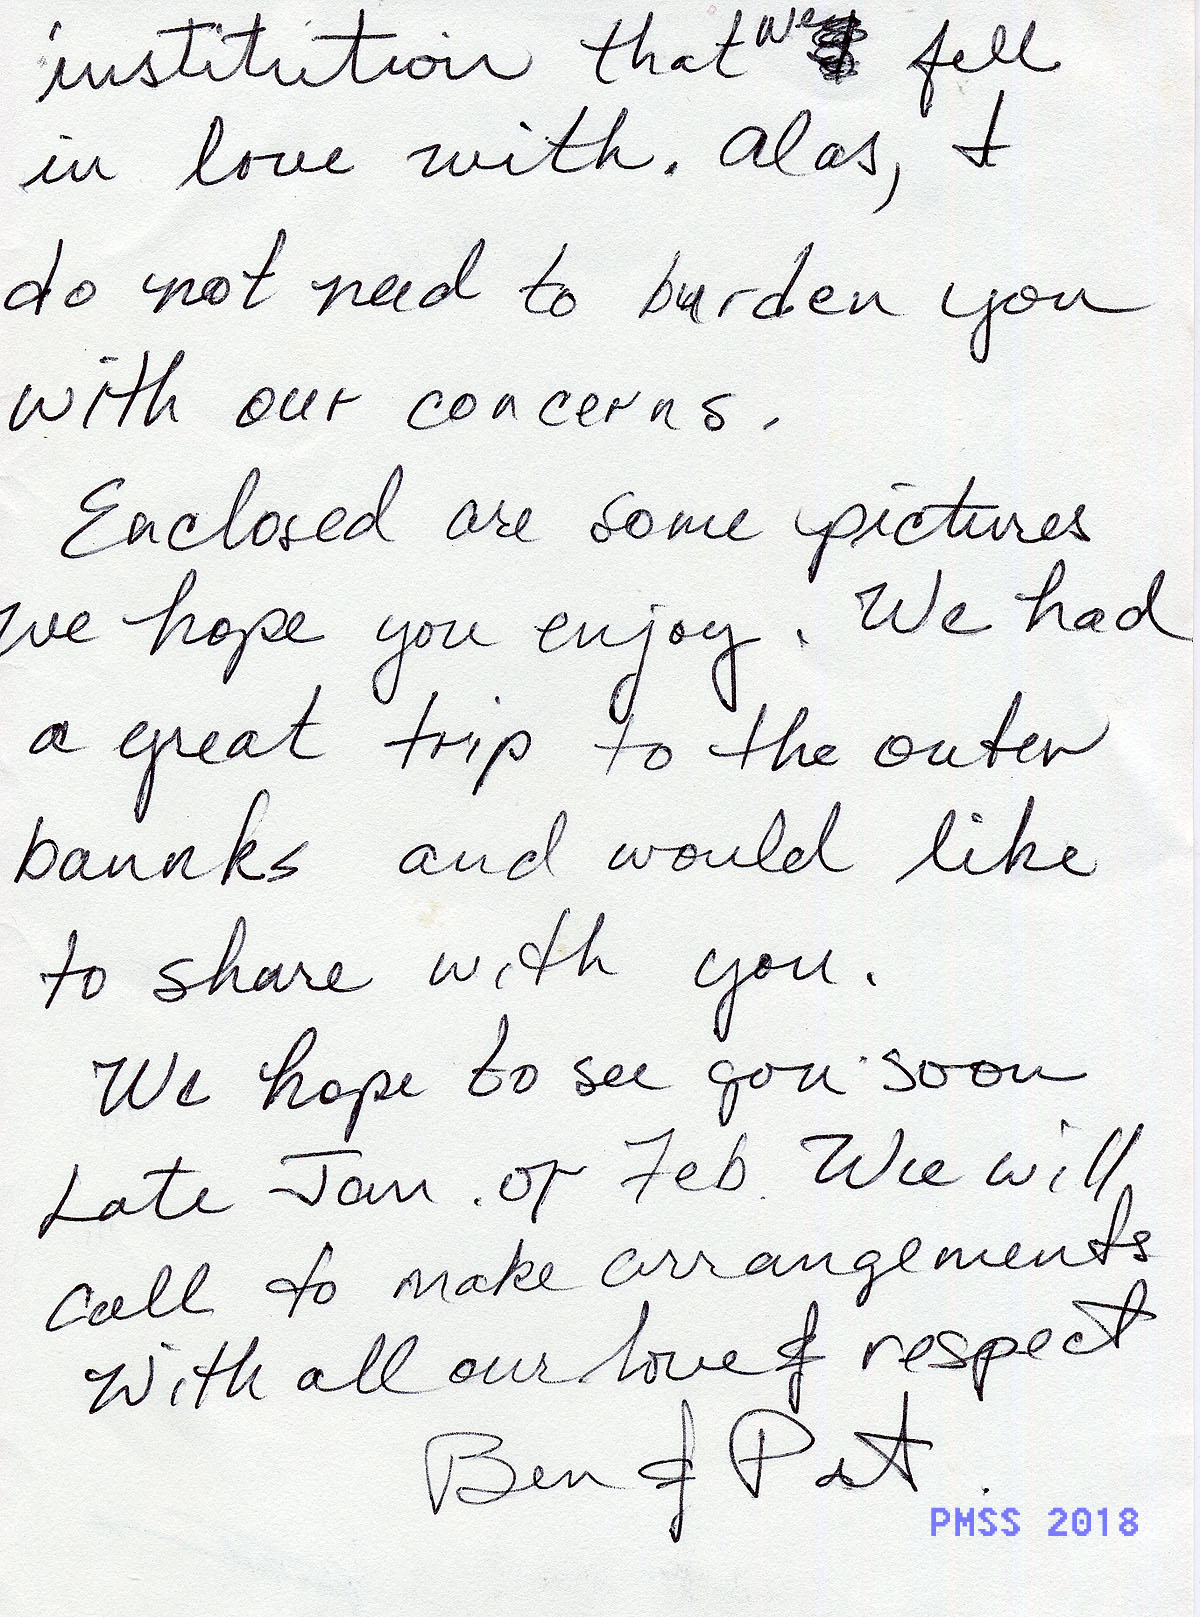 institution that we fell
in love with. Alas, I
do not need to burden you
with our concerns.
Enclosed are some pictures
we hope you enjoy. We had
a great trip to the outer
bannks and would like
to share with you.
We hope to see you soon
Late Jan. or Feb. Wee will
call to make arrangements
With all our love & respect
Ben & Pat.
PMSS 2018